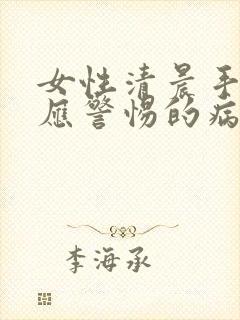 女性清晨手
应警惕的病
李海承